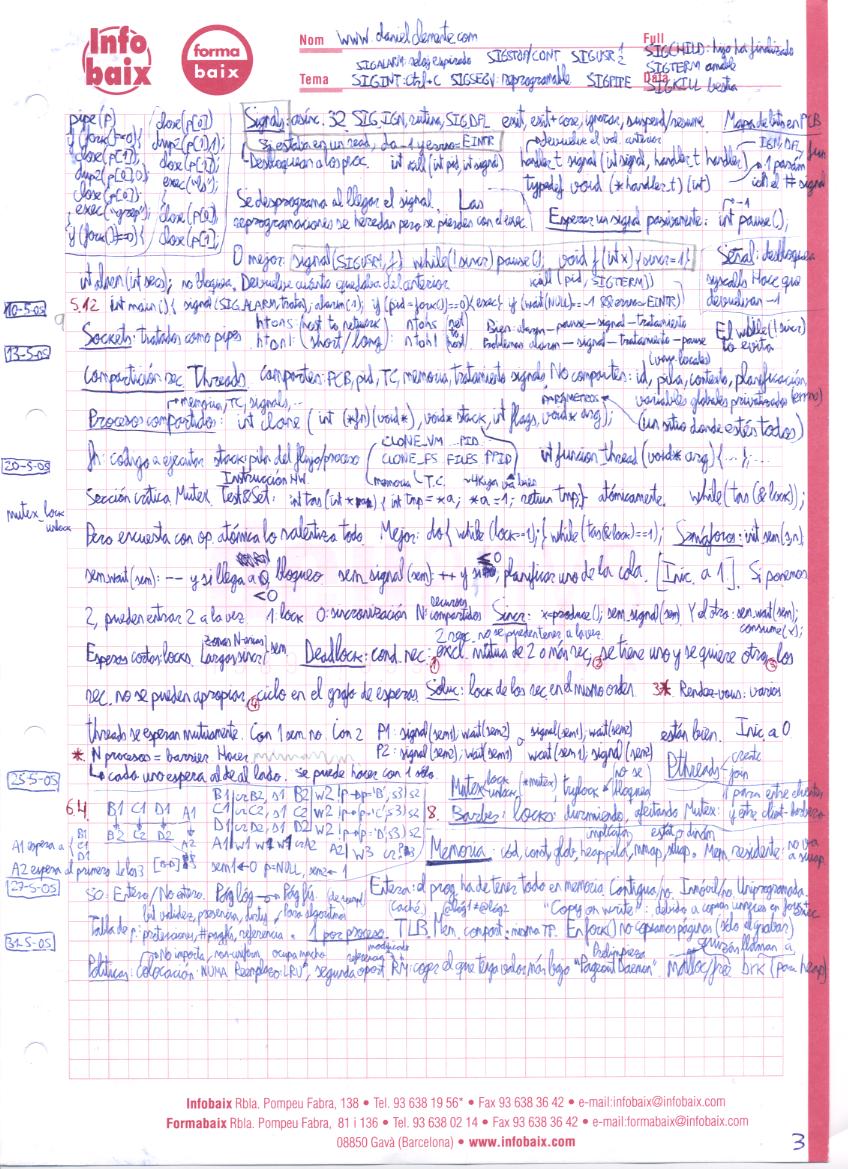 Info baix
forma baix
Nom www.danielclemente.com
Full
Tema
Data
SIGALARM: reloj expirado SIGSTOP/CONT SIGUSR 1 2
SIGCHILD: hijo ha finalizado
SIGINT: Ctrl+C SIGSEGV: reprogramable SIGPIPE
SIGTERM amable
SIGKILL bestia
pipe(p)
if (fork()==0){
close(p[1]);
dup2(p[0],0);
close(p[0]);
exec("grep");
if (fork()==0){
close(p[0])
dup2(p[1],1);
close(p[1]);
exec("ls");
close(p[0]);
close(p[1]);
Signals: asínc. 32 SIG_IGN, rutina, SIG_DFL exit, exit+core, ignorar, suspend/resume. Mapa de bits en PCB
Si estaba en un read, da -1 y errno=EINTR
devuelve el val anterior
Desbloquean a los proc. int kill (int pid, int signal)
handler_t signal (int signal, handler_t handler)
IGN, DFL, fun
1 parám
typedef void (*handler_t)(int)
el # signal
Se desprograma al llegar el signal. Las
reprogramaciones se heredan pero se pierden con el exec.
Esperar un signal pasivamente: int pause();
-1
O mejor: signal(SIGUSR1,f) while(!sincr) pause(); void f(int x){sincr=1;}
Señal: desbloquea
syscalls bloqu que
devuelvan -1
int alarm(int secs); no bloquea. Devuelve cuánto quedaba del anterior
kill (pid, SIGTERM))
10-5-05
5.12 int main(){ signal(SIGALARM,trata); alarm(1); if(pid=fork()==0){exec} if (wait(NULL)==-1 && errno=EINTR)
13-5-05
Sockets: tratados como pipes
htons (host to network) ntohs (net
htonl (short/long) ntohl host)
Bien: alarm-pause-signal-tratamiento
Problemas: alarm-signal-tratamiento-pause
El while(!sincr)
lo evita
(vars. locales)
Compartición rec. Threads comparten: PCB, pid, TC, memoria, tratamiento signals. No comparten: id, pila, contexto, planificación,
memoria, TC, signals,...
parámetros
variables globales privatizadas (errno)
Procesos compartido: int clone (int (*fn)(void*), void* stack, int flags, void* arg);
(un sitio donde estén todos)
20-5-05
fn: código a ejecutar stack: pila del flujo/proceso
CLONE_VM ...PID
CLONE_FS FILES PPID
memoria T.C.
int funcion_thread (void* arg) {...;...
Instrucción HW
Sección crítica Mutex. Test&Set: int tas (int *a) { int tmp=*a; *a=1; return tmp;} atómicamente. while(tas(&lock));
mutex_lock
unlock
Pero encuesta con op. atómica lo ralentiza todo. Mejor: do{ while(lock==1);} while(tas(&lock)==1); Semáforos: int sem(s,n)
sem_wait(sem): -- y si llega a <0 bloqueo sem_signal(sem): ++ y si ≤0, planificar uno de la cola. [Inic. a 1]. Si ponemos
2, pueden entrar 2 a la vez 1: lock 0: sincronización N: recursos compartidos Sincr: x=produce(); sem_signal(sem) Y el otro: sem_wait(sem);
consume(x);
2 rec. no se pueden tener a la vez
Esperas cortas: locks. Largas: sem. Deadlock: cond. nec.: excl. mútua de 2 o más rec, se tiene uno y se quiere otro, los
rec. no se pueden apropiar, ciclo en el grafo de esperas. Soluc: lock de los rec en el mismo orden 3* Rendez-vous: varios
threads se esperan mutuamente. Con 1 sem. no. Con 2 P1: signal(sem1), wait(sem2) o signal(sem1), wait(sem2) están bien. Inic. a 0
P2: signal(sem2), wait(sem1) wait(sem1), signal(sem2)
* N procesos = barrier. Hacer
cada uno espera al de al lado. Se puede hacer con 1 sólo
Pthreads create
join
25-5-05
Mutex lock unlock (*mutex) trylock no se bloquea
6.4
B1 C1 D1 A1
B2 C2 D2
A1 espera a B1 C1 D1
A2 espera al primero de los 3
B1|cr B2, s1 B2|w2 !p→p='B', s3) s2
C1|cr C2, s1 C2|w2 !p→p='C', s3) s2
D1|cr D2, s1 D2|w2 !p→p='D', s3) s2
A1|w1 w1 w1 cr A2 A2|w3
sem1←0 p=NULL, sem2←1
8. Barbero: locks: durmiendo, afeitando Mutex:
1 para entre clientes
y entre client-barbero
Memoria: cód, const, glob, heap, pila, mmap, swap. Mem residente: no va a swap
27-5-05
SO: Entero/No entero. Pág lóg → Pág fís.
Entera: el prog. ha de tener todo en memoria Contigua/no. Inmóvil/no. Uniprogramada.
bit validez, presencia, dirty, para algoritmos
(caché) @lóg1≠@lóg2
"Copy on write": debido a copias
Tabla de p: protecciones, #pág fís, referencia. 1 por proceso TLB. Mem. compart: misma TP. En fork() no copiamos páginas (sólo al grabar)
31-5-05
No importa, non-uniform, ocupa mucho
referencia modificado
Prelimpieza
quizás llaman a
Políticas: Colocación: NUMA Reemplazo: LRU, segunda oport. RM: coger el que tenga valor más bajo "Pageout Daemon" malloc/free brk (para heap)
Infobaix Rbla. Pompeu Fabra, 138 • Tel. 93 638 19 56* • Fax 93 638 36 42 • e-mail:infobaix@infobaix.com
Formabaix Rbla. Pompeu Fabra, 81 i 136 • Tel. 93 638 02 14 • Fax 93 638 36 42 • e-mail:formabaix@infobaix.com
08850 Gavà (Barcelona) • www.infobaix.com
3